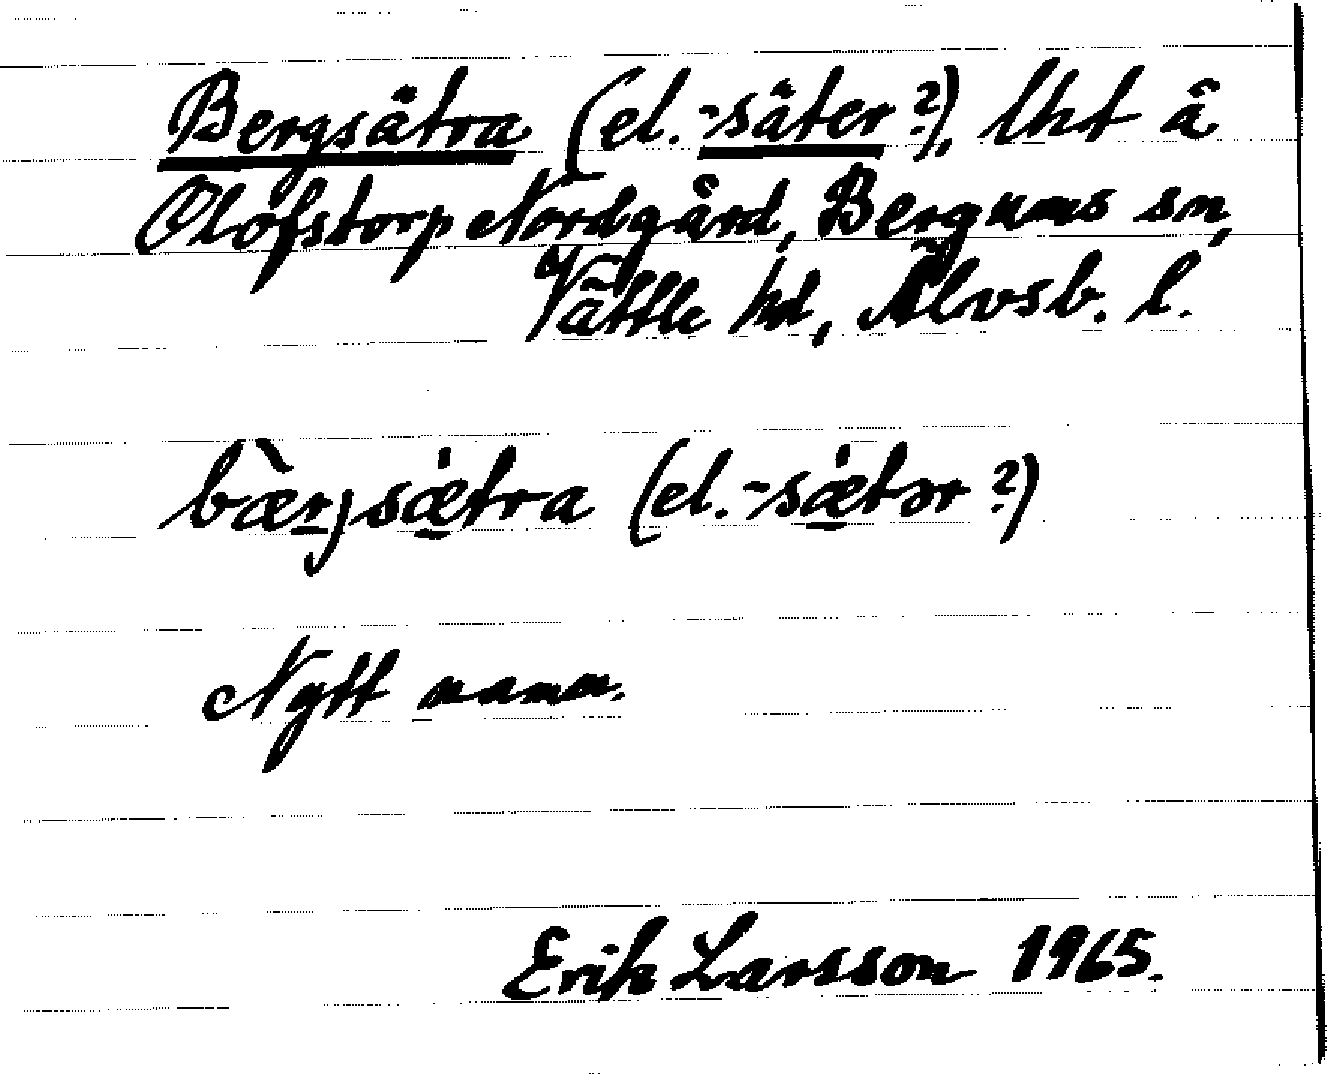 Bergsätra (el. -säter?), lht å
Olofstorp Nordgård, Bergums sn,
Vättle hd, Älvsb. l.
bær̲jsæ̲tra (el. -sæ̲tər?)
Nytt namn.
Erik Larsson 1965.